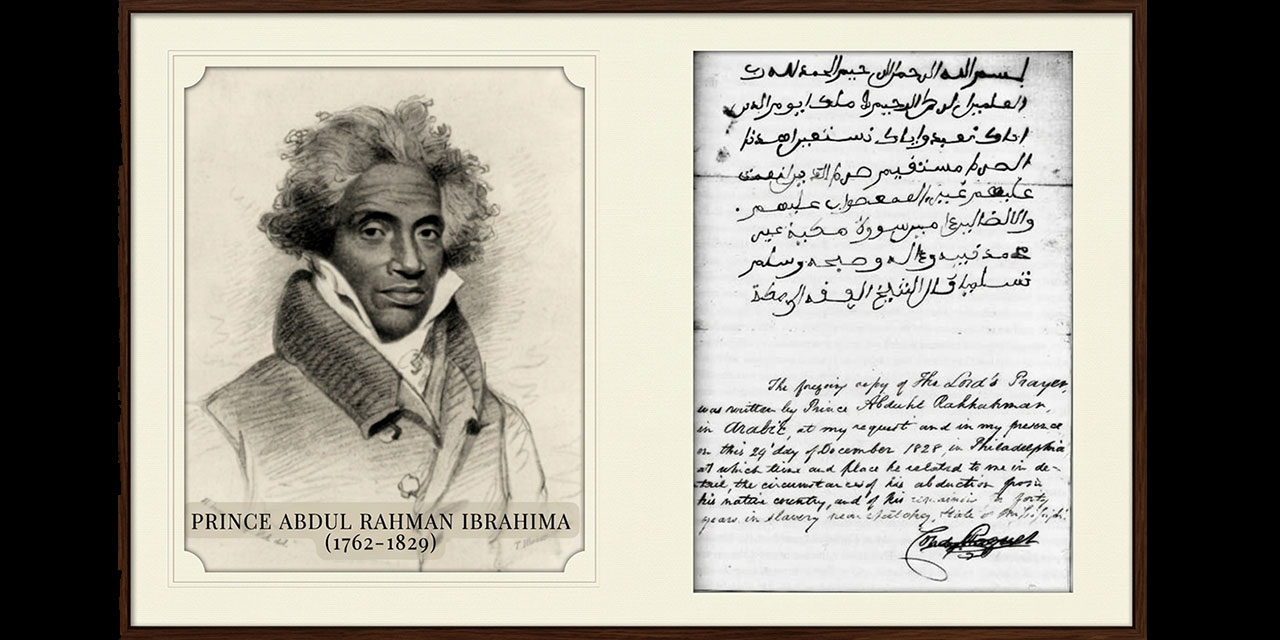 PRINCE ABDUL RAHMAN IBRAHIMA
(1762-1829)
بسم الله الرحمن الرحيم الحمد لله رب
العلمين الرحمن الرحيم ملك ايوم الدين
اياك نعبد واياك نستعين اهدنا
الصرط مستقيم صرط الذين انعمت
عليهم غير المغضوب عليهم
والالضالين امين سورة مكية
نبيه واله وصحبه وسلم
تسليما قال الشيخ الفقه
The foregoing copy of The Lord's Prayer,
was written by Prince Abduhl Rahhahman,
in Arabic, at my request and in my presence
on this 29' day of December 1828, in Philadelphia,
at which time and place he related to me in de-
tail, the circumstances of his abduction from
his native country, and of his remaining forty
years in slavery near Natchez, State of Mississippi.
Condy Raguet